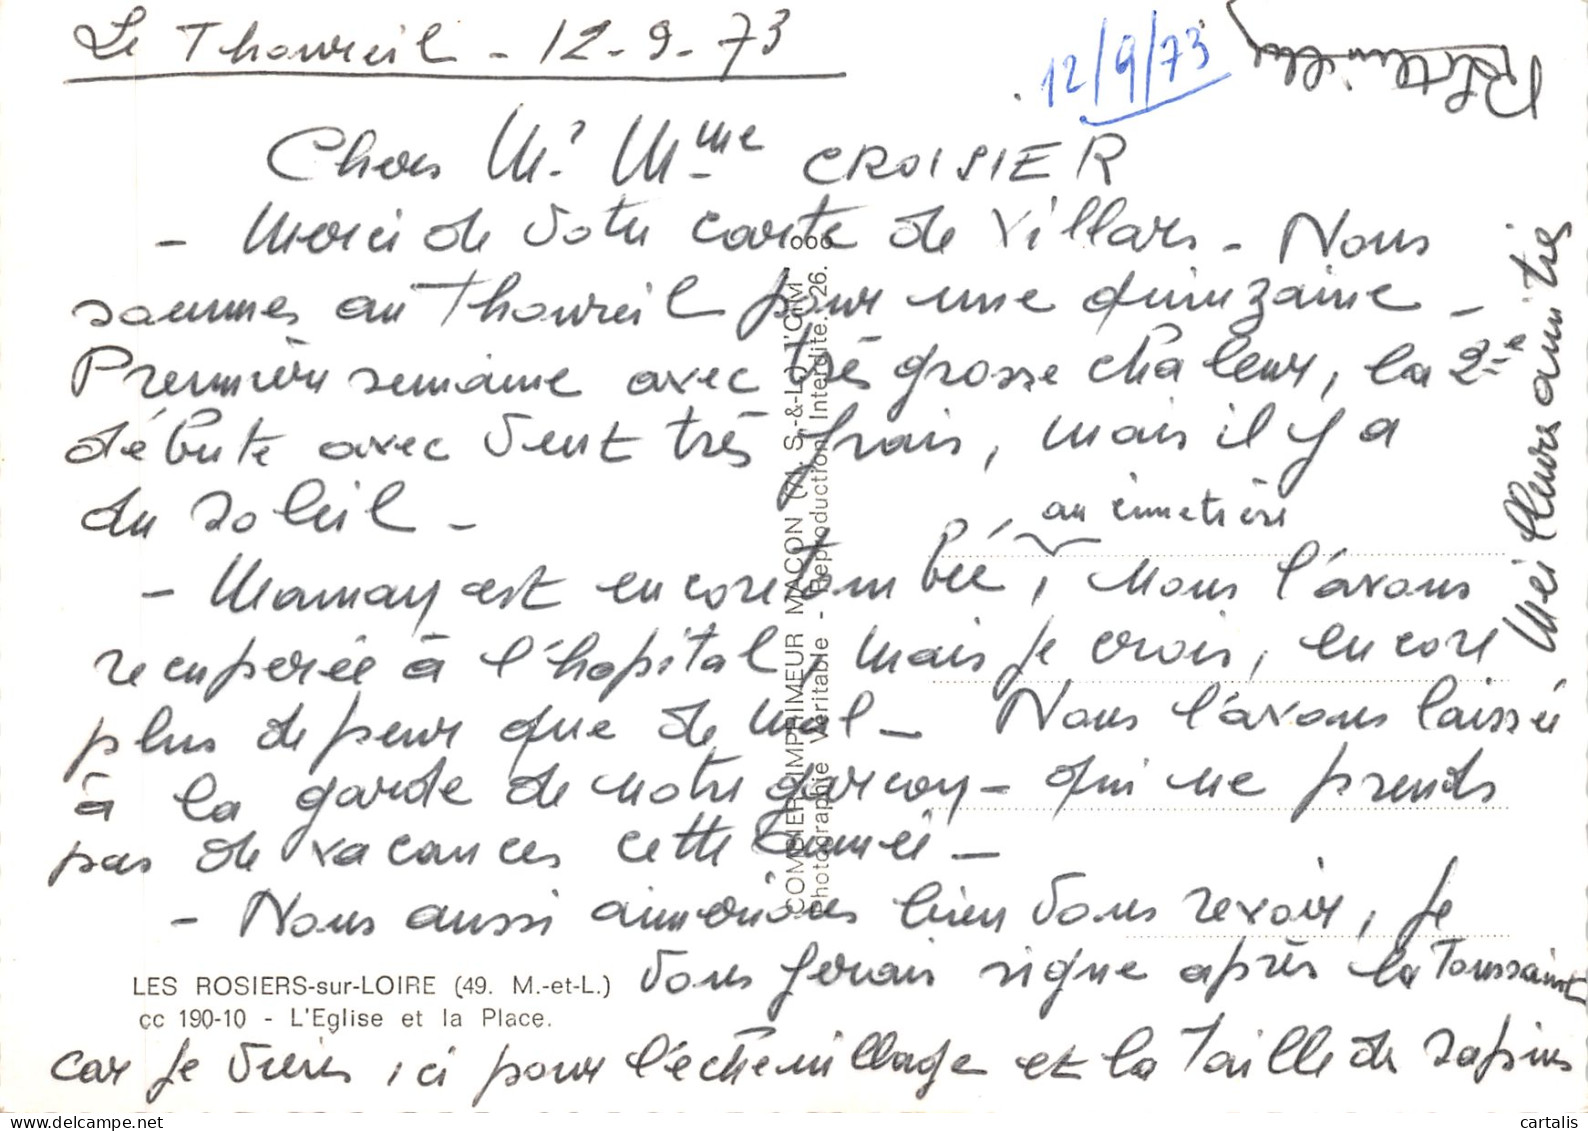 Le Thoureil - 12-9-73
12/9/73
Chers Mr Mme CROISIER
- Merci de votre carte de Villars - Nous
sommes au Thoureil pour une quinzaine -
Première semaine avec très grosse chaleur, la 2e
débute avec vent très frais, mais il y a
du soleil -
- Maman est encore tombée au cimetière, nous l'avons
recupérée à l'hopital, mais je crois, encore
plus de peur que de mal - Nous l'avons laissée
à la garde de notre garçon - qui ne prends
pas de vacances cette année -
- Nous aussi aimerions bien vous revoir, je
vous ferais signe après la Toussaint
car je viens ici pour l'échenillage et la Taille de sapins
Meilleures amitiés
LES ROSIERS-sur-LOIRE (49. M.-et-L.)
cc 190-10 - L'Eglise et la Place.
COMBIER IMPRIMEUR MACON (71. S.-&-L.) "CIM"
Photographie Véritable - Reproduction Interdite. 26.
cartalis